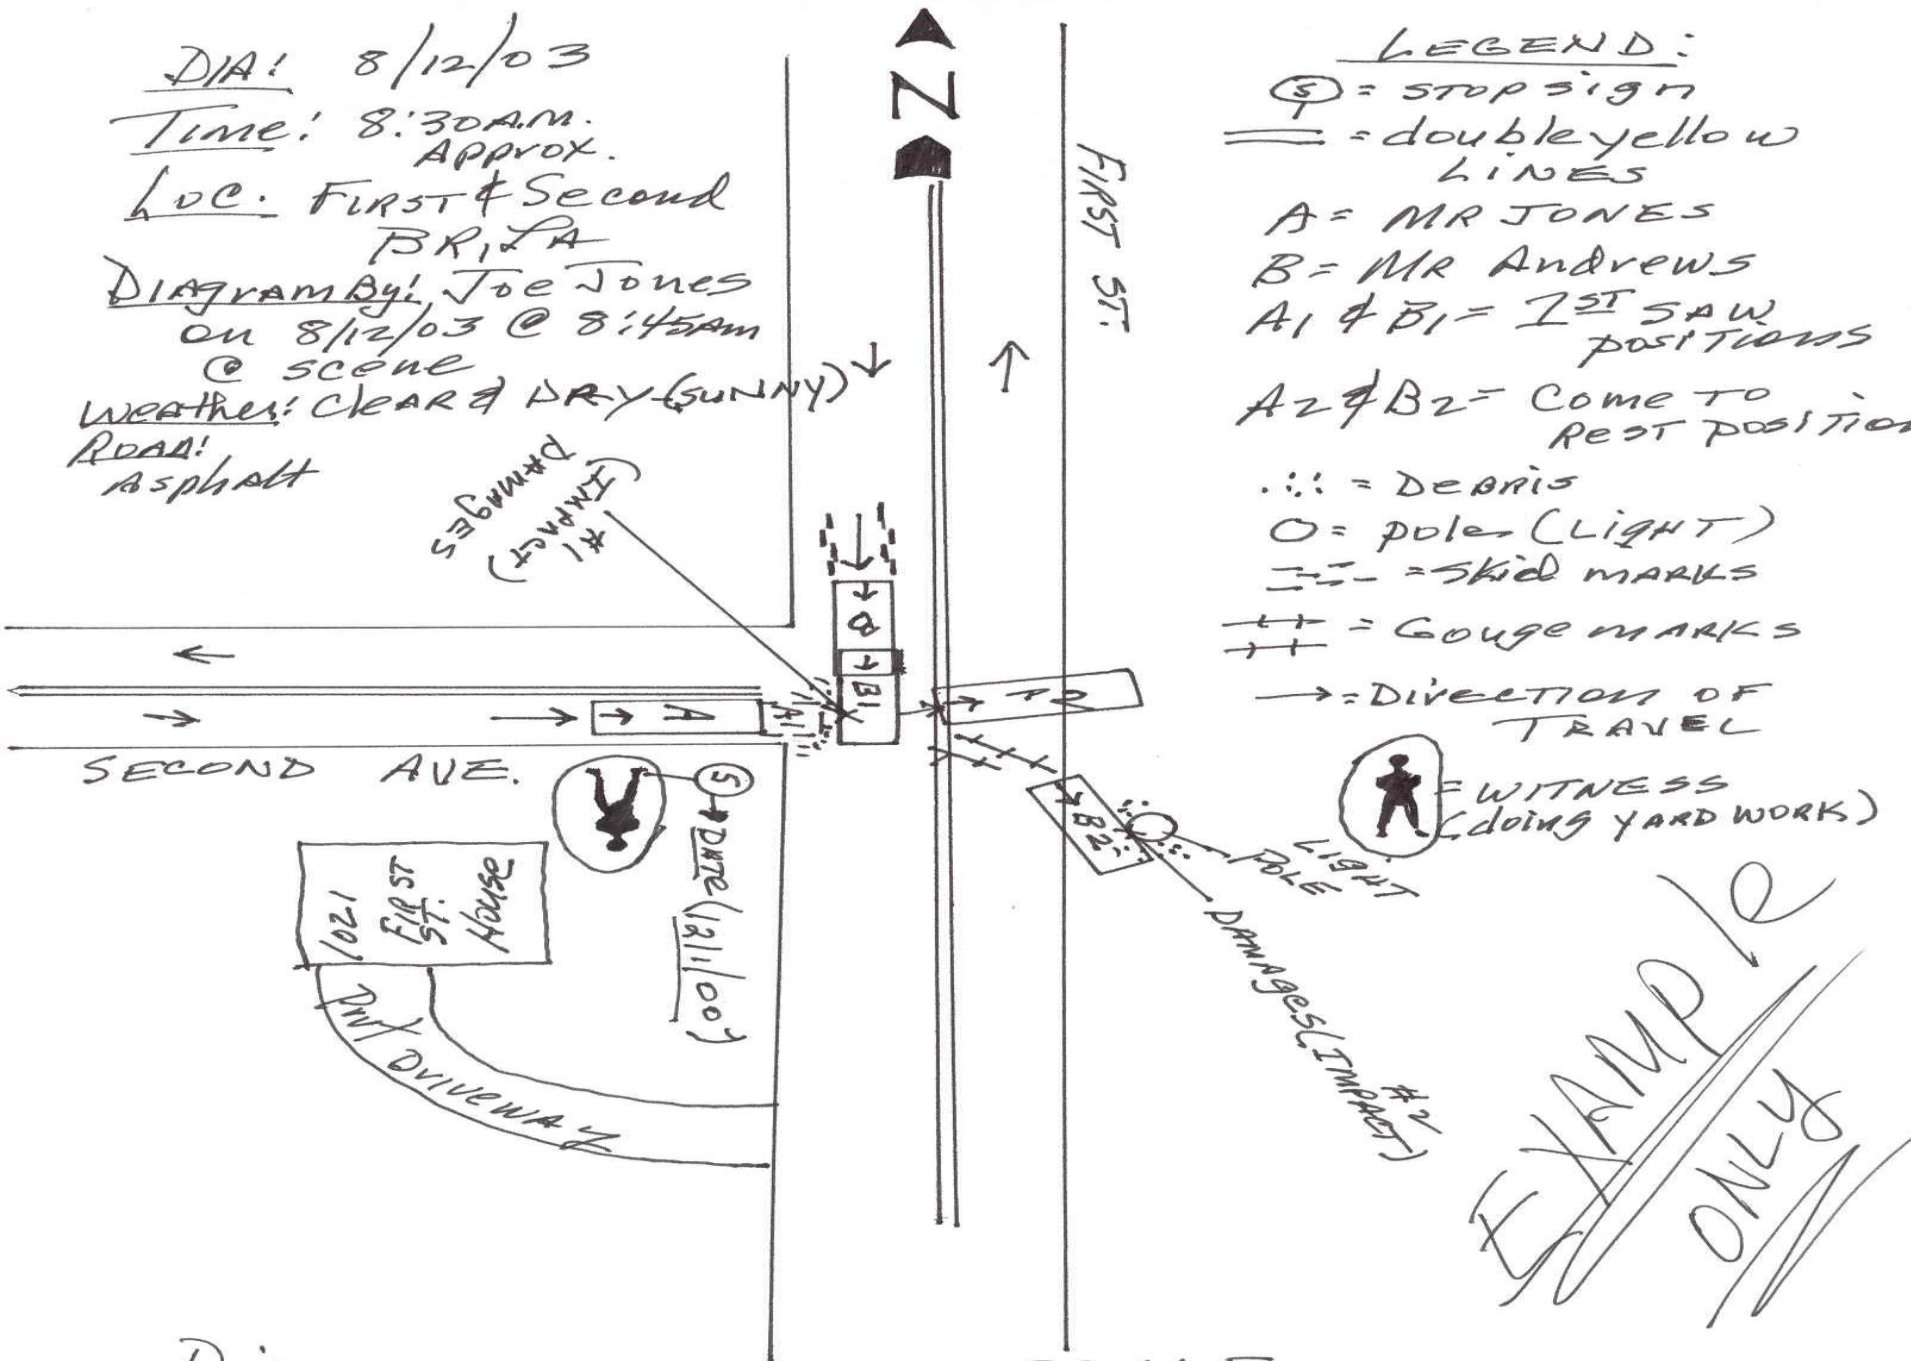 DIA: 8/12/03
Time: 8:30 A.M.
Approx.
Loc. FIRST & Second
BR, LA
Diagram By: Joe Jones
on 8/12/03 @ 8:45am
@ scene
Weather: Clear & DRY (SUNNY)
ROAD:
Asphalt
N
FIRST ST.
LEGEND:
S = STOP sign
= double yellow
LINES
A = MR JONES
B = MR Andrews
A1 & B1 = 1ST SAW
positions
A2 & B2 = Come TO
REST position
= Debris
O = pole (LIGHT)
= Skid MARKS
= Gouge MARKS
→ = Direction OF
TRAVEL
= WITNESS
(doing YARD WORK)
DAMAGES
(IMPACT)
#1
B
B1
A
A1
A2
SECOND AVE.
S
DATE (12/1/00)
1021
FIRST
ST.
House
DRIVEWAY
B2
LIGHT
POLE
DAMAGES (IMPACT)
#2
EXAMPLE
ONLY